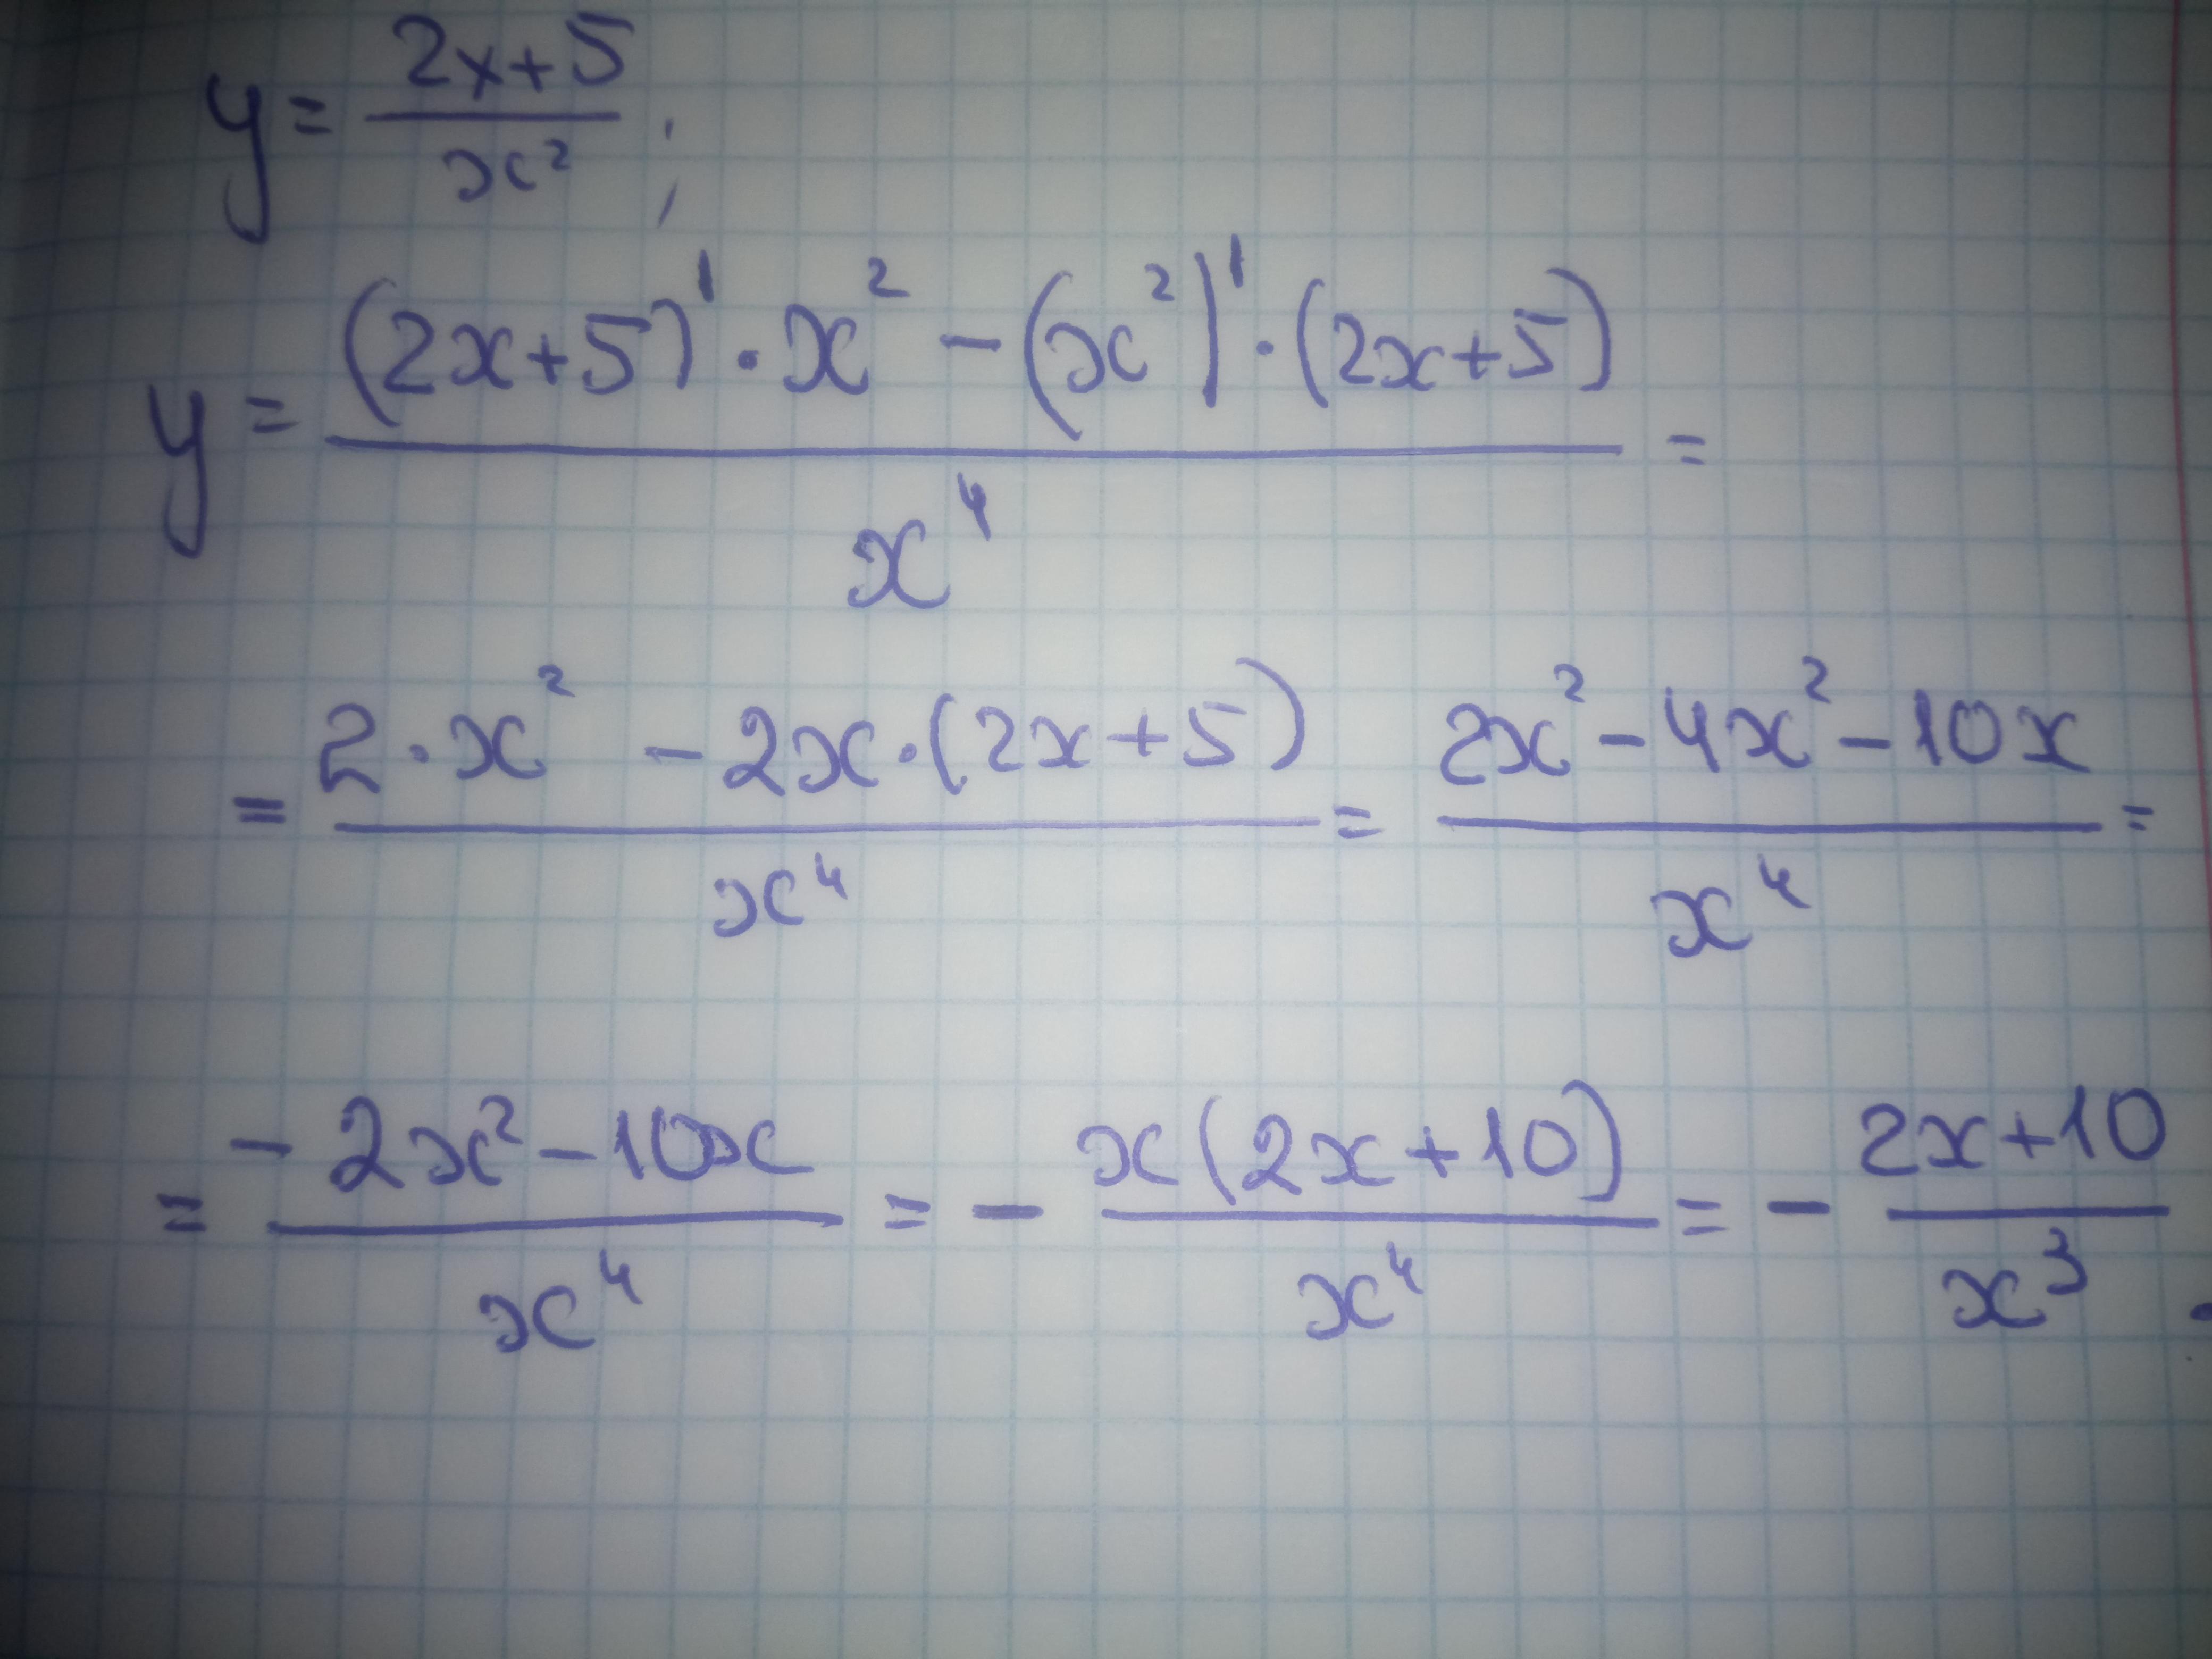 y = (2x+5)/x² ;
y = ((2x+5)' · x² − (x²)' · (2x+5))/x⁴ =
= (2·x² − 2x·(2x+5))/x⁴ = (2x² − 4x² − 10x)/x⁴ =
= (−2x² − 10x)/x⁴ = − x(2x+10)/x⁴ = − (2x+10)/x³ .